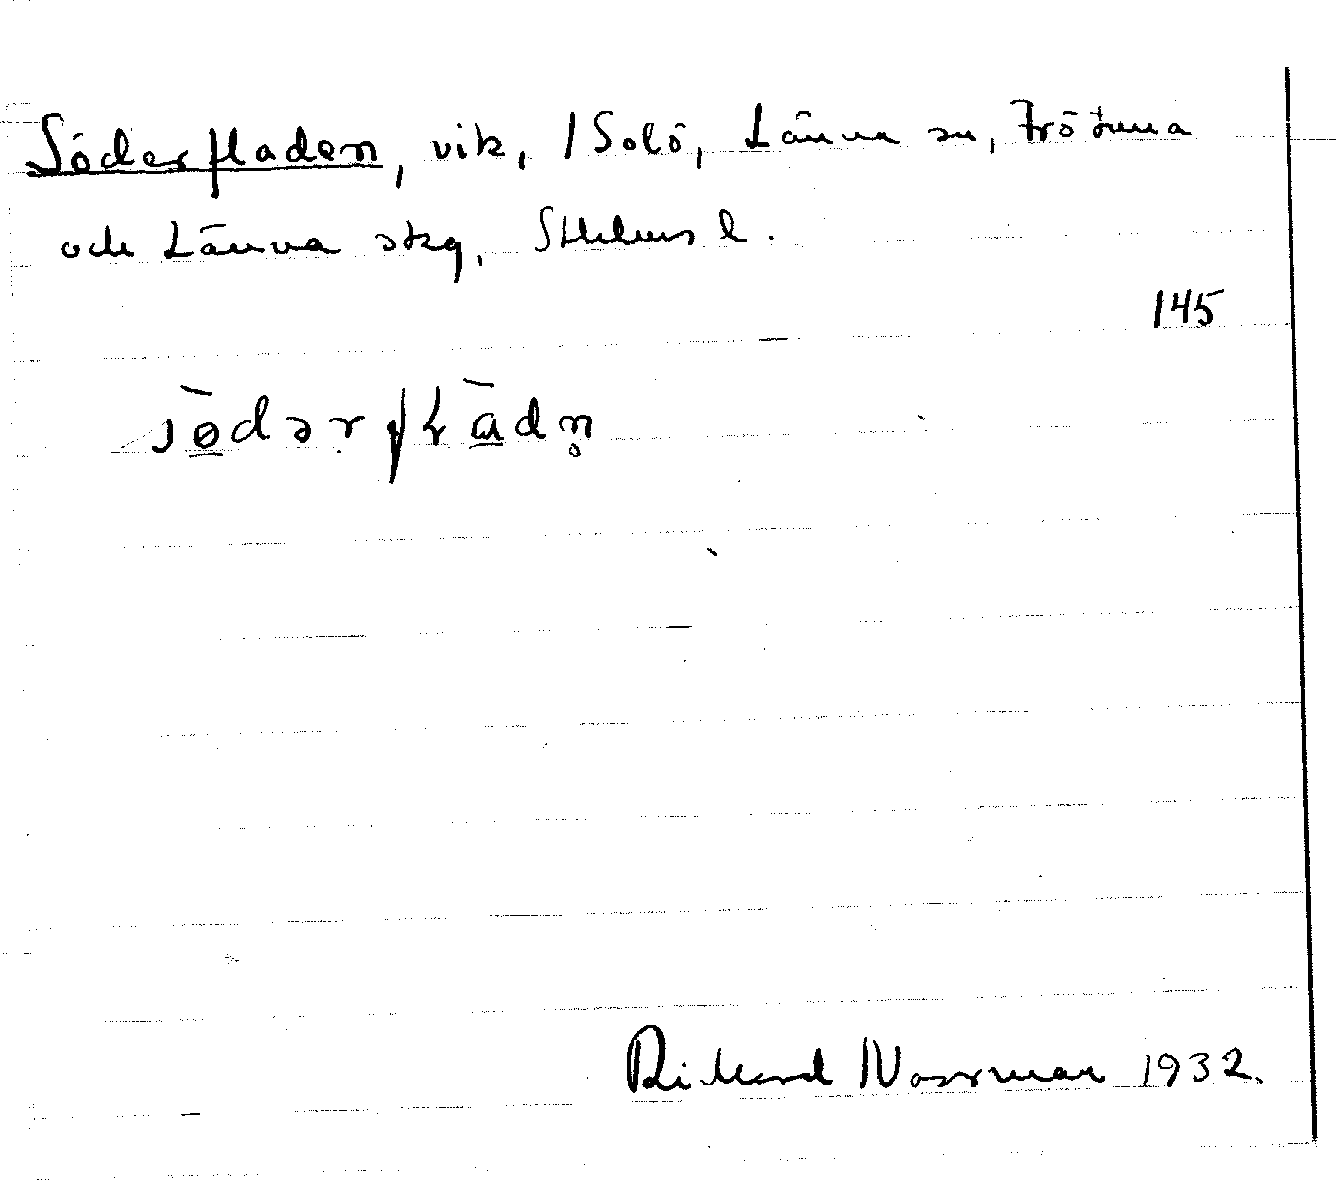 Söderfladen, vik, 1 Solö, Länna sn, Frötuna
och Länna skg, Sthlms l.
145
sö̀dərfɫàdn̥
Rickard Norrman 1932.